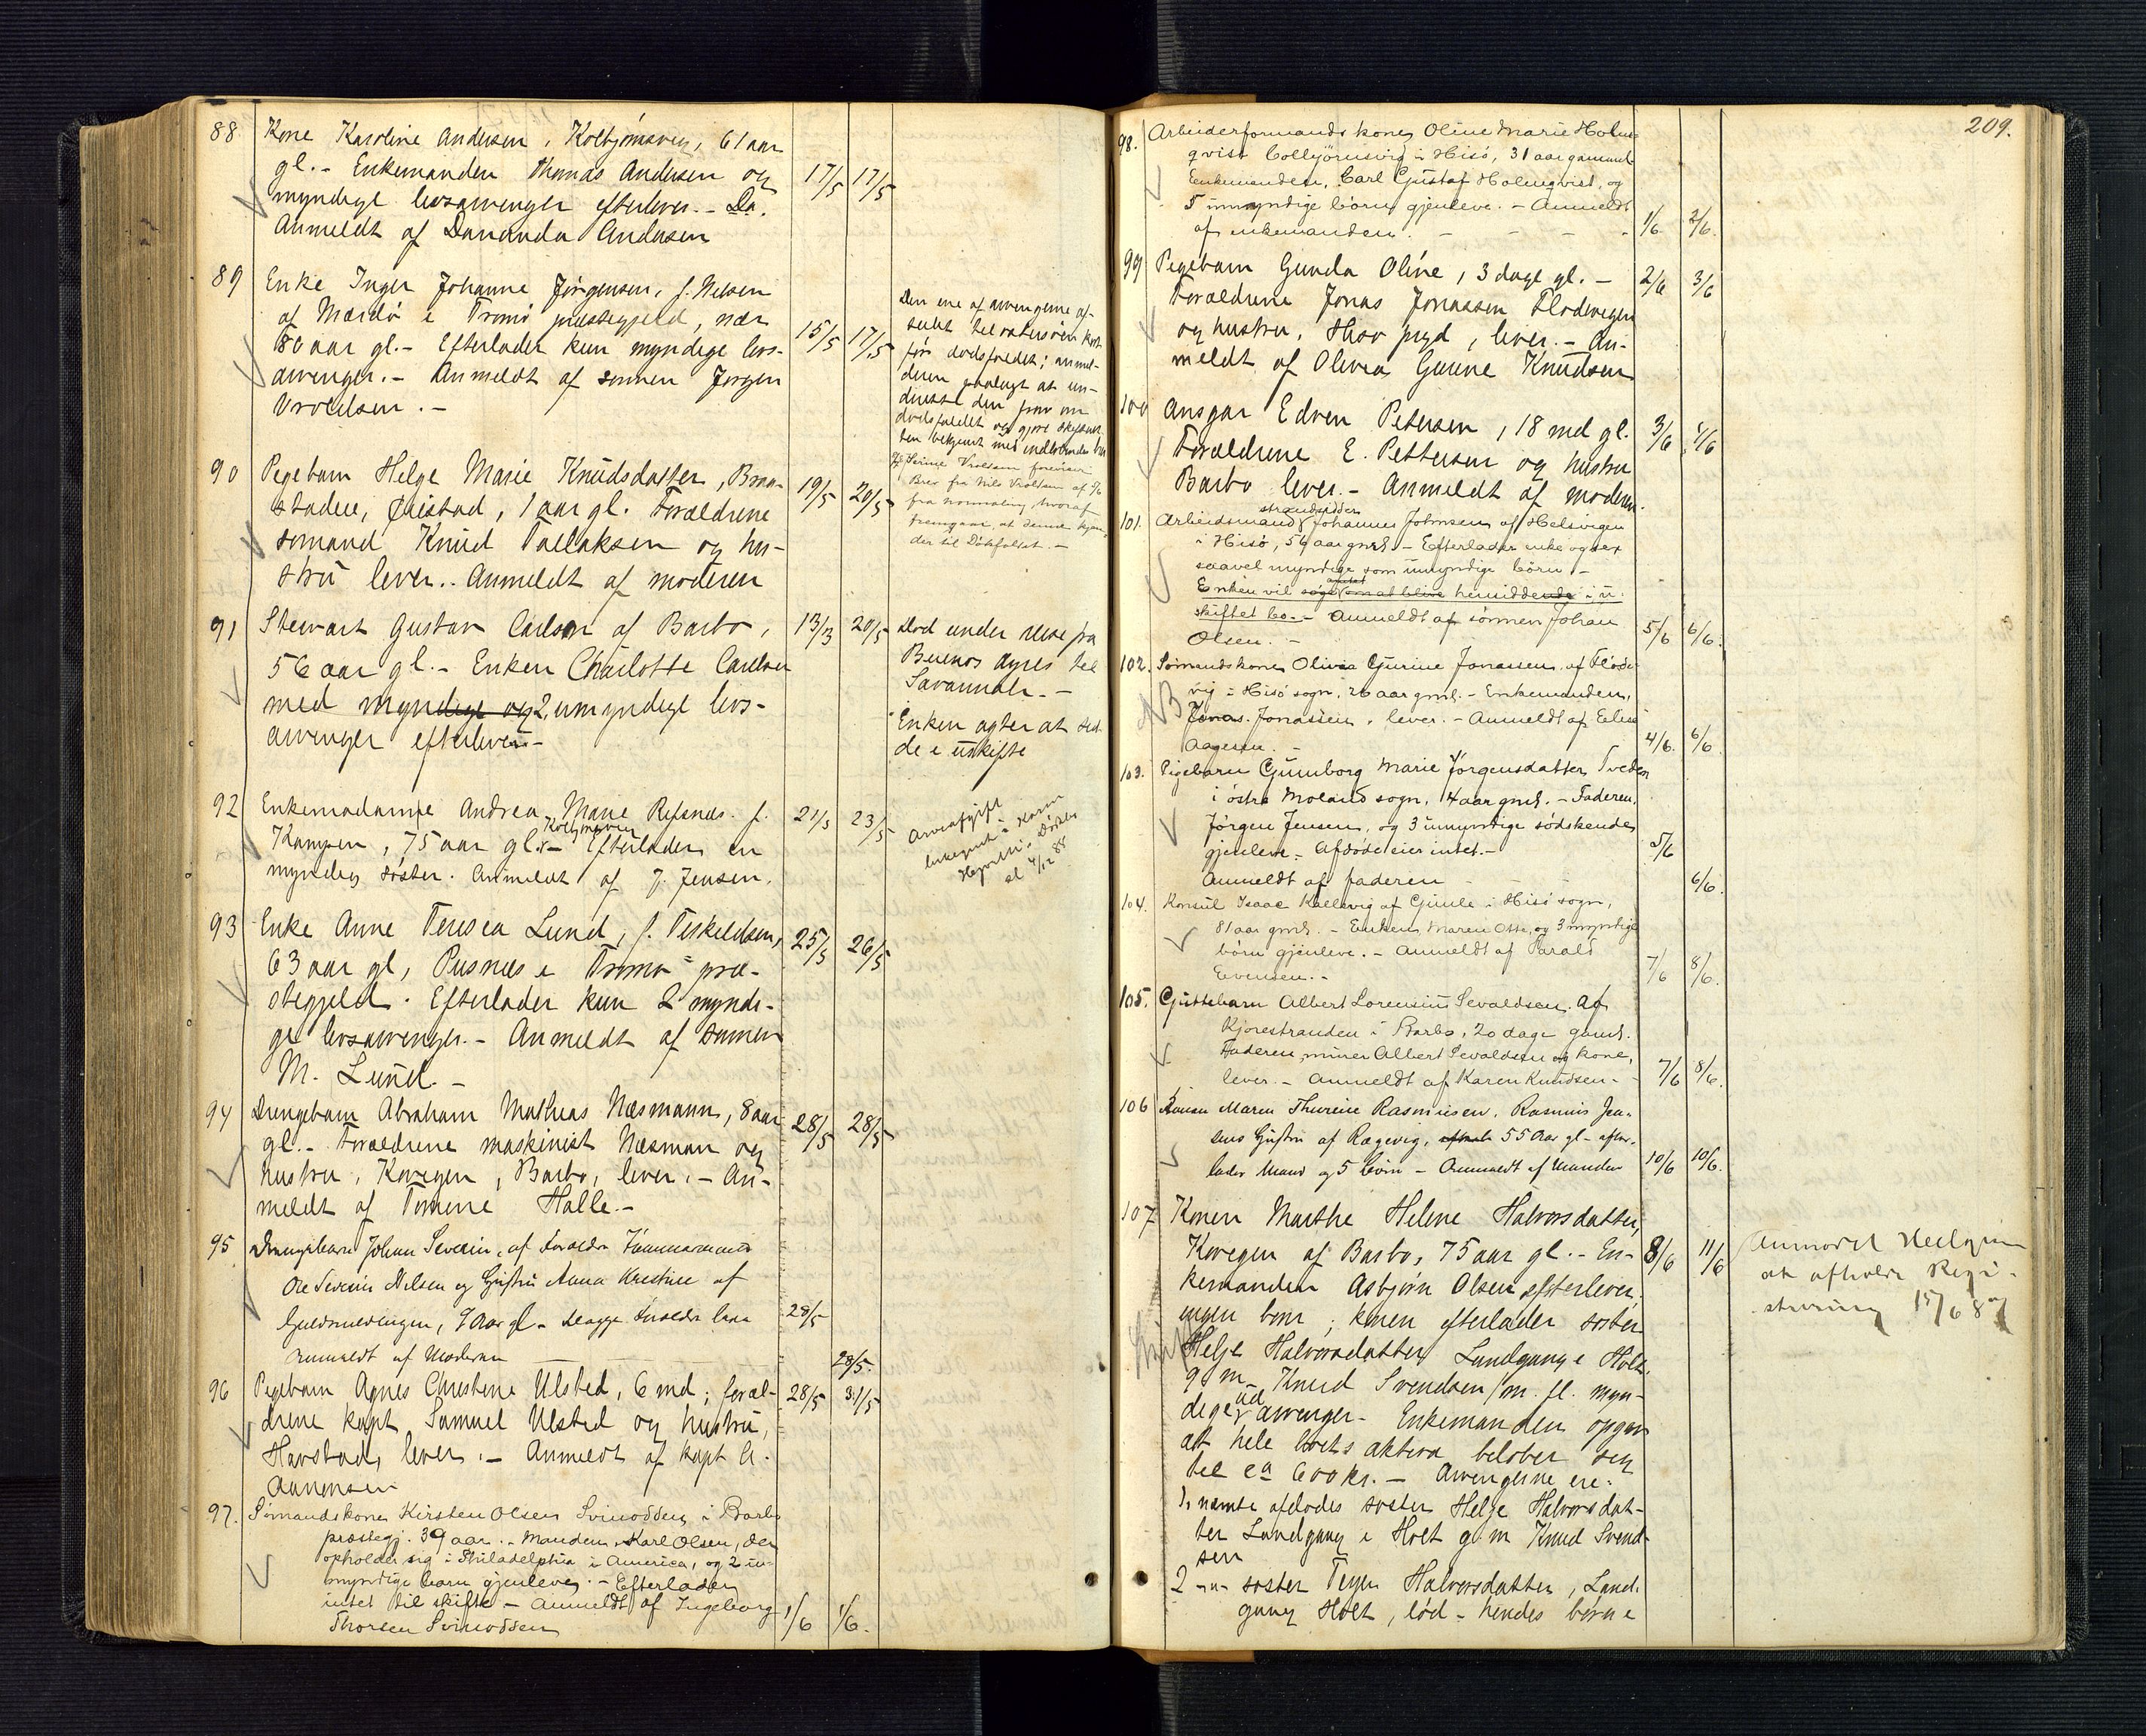 88 Kone Karoline Andersen, Kolbjørnsvig, 61 aar
gl. - Enkemanden Thomas Andersen og
myndige livsarvinger efterlever. - Do. 17/5 17/5
Anmeldt af Andersen
89 Enke Inger Johanne Jørgensen, f. Nilsen
af Mærdø i Tromø præstegjeld, nær
80 aar gl. - Efterlader kun myndige livs- 15/5 17/5
arvinger. - Anmeldt af sønnen Jørgen
Vroldsen. -
Den ene af arvingerne af-
seilt til østersøen kort
før dødsfaldet; anmel-
deren paalagt at un-
derrette den fra om
dødsfaldet og gjøre skifteret-
ten bekjent med indløbende brev
Vroldsen foreviser
Brev fra Nils Vroldsen af
fra hvoraf
fremgaar, at denne kjen-
der til Dødsfaldet. -
90 Pigebarn Helge Marie Knudsdatter, Braa-
staden, Øiestad, 1 aar gl. Forældrene 19/5 20/5
sømand Knud Tallaksen og hu-
stru lever. - Anmeldt af moderen
91 Stewart Gustav Carlson af Barbo, 13/3 20/5
56 aar gl. - Enken Charlotte Carlson
med myndige og 2 umyndige livs-
arvinger efterlever -
Død under reise fra
Buenos Ayres til
Savannah. -
Enken agter at sid-
de i uskifte
92 Enkemadame Andrea Marie Refsnæs f. 21/5 23/5
Kolbjørnsvig
Kamp, 75 aar gl. - Efterlader en
myndig søster. Anmeldt af J. Jensen.
Arveafgift
4/12 88
93 Enke Anne Teresea Lund, f. Terkeldsen, 25/5 26/5
63 aar gl, Pusnæs i Tromø præ-
stegjeld. Efterlader kun 2 myndi-
ge livsarvinger. - Anmeldt af sønnen
M. Lund. -
94 Drengebarn Abraham Mathias Næsmann, 8 aar 28/5 28/5
gl. - Forældrene maskinist Næsman og
hustru, Kovegen, Barbo, lever. - An-
meldt af Tomine Halle. -
95 Drengebarn Johan Severin, af Forældre Tømmermand
Ole Severin Nilsen og Hustru Anna Kristine af
Guldsmedengen, 9 Aar gl - begge Forældre leve 28/5
Anmeldt af Moderen 28/5.
96 Pigebarn Agnes Christine Ulsted, 6 md; foræl- 28/5 31/5
drene kapt Samuel Ulsted og hustru,
Havstad, lever. - Anmeldt af kapt A.
Aanonsen
97. Sømandskone Kirsten Olsen Svinodden i Barbo
præstegj. 39 aar. - Manden, Karl Olsen, der
opholder sig i Philadelphia i America, og 2 u-
myndige barn gjenlever. - Efterlader
intet til skifte - Anmeldt af Ingeborg
Thorsen Svinodden 1/6 1/6.
209.
98. Arbeiderformands kone, Oline Marie Holm-
qvist Colbjörnsvig i Hisö, 31 aar gammel
Enkemanden, Carl Gustaf Holmqvist, og
5 umyndige börn gjenleve. - Anmeldt
af enkemanden. - - - - 1/6 2/6.
99 Pigebarn Gunda Oline, 3 dage gl. - 2/6 3/6
Forældrene Jonas Jonassen Flødevigen
og hustru, Hisø prgd, lever. - An-
meldt af Olivia Gurine Knudsen
100 Ansgar Edvin Petersen, 18 md gl. 3/6 4/6
Forældrene E. Pettersen og hustru
Barbo lever. - Anmeldt af moderen.
101. strandsidder
Arbeidsmand Johannes Johnsen af Helsvigen
i Hisö, 56 aar gml. - Efterlader enke og sex
saavel myndige som umyndige börn. -
Enken vil söge om at blive hensiddende i u-
skiftet bo. - Anmeldt af sönnen Johan
Olsen. - 5/6 6/6.
102. Sømandskone Olivia Gurine Jonassen af Flöde-
vig i Hisö sogn, 26 aar gml. - Enkemanden,
NB Jonas Jonassen, lever. - Anmeldt af
Aagesen. - 4/6. 6/6.
103. Pigebarn Gunborg Marie Jörgensdatter Sveden
i östre Moland sogn, 4 aar gml. - Faderen,
Jörgen Jensen, og 3 umyndige södskende
gjenleve. - Afdöde eier intet. - 5/6
Anmeldt af faderen - - - 6/6.
104. Konsul Isaac Kallevig af Gimle i Hisö sogn,
81 aar gml. - Enken Maren Otte, og 3 myndige
börn gjenleve. - Anmeldt af Harald
Evensen. - 7/6 8/6.
105. Guttebarn Albert Lorensius Sevaldsen af
Kjorestranden i Barbo, 20 dage gaml.
Faderen, minér Albert Sevaldsen og kone,
lever. - Anmeldt af Karen Knudsen - 7/6 8/6.
106 Konen Maren Thurine Rasmussen, Rasmus Jen-
sens Hustru af Rægevig, 55 Aar gl - efter-
lader Mand og 5 börn - Anmeldt af Manden 10/6 10/6.
107 Konen Marthe Helene Halvorsdatter,
Kovegen af Barbo, 75 aar gl. - En- 8/6 11/6
kemanden Asbjørn Olsen efterlever,
ingen børn; konen efterlader søster
Helje Halvorsdatter Landgang i Holt
g. m. Knud Svendsen m. fl. myn-
ud
dige arvinger - Enkemanden opgav
at hele boets aktiva beløber seg
til ca 600 kr. - Arvingerne ere:
1, nævnte afdødes søster Helje Halvorsdat-
ter Landgang i Holt g. m. Knud Svend-
sen
2 -"- søster Halvorsdatter, Land-
gang Holt, død - hendes børn:
Anmodet
at afholde Regi-
strering 15/6 87